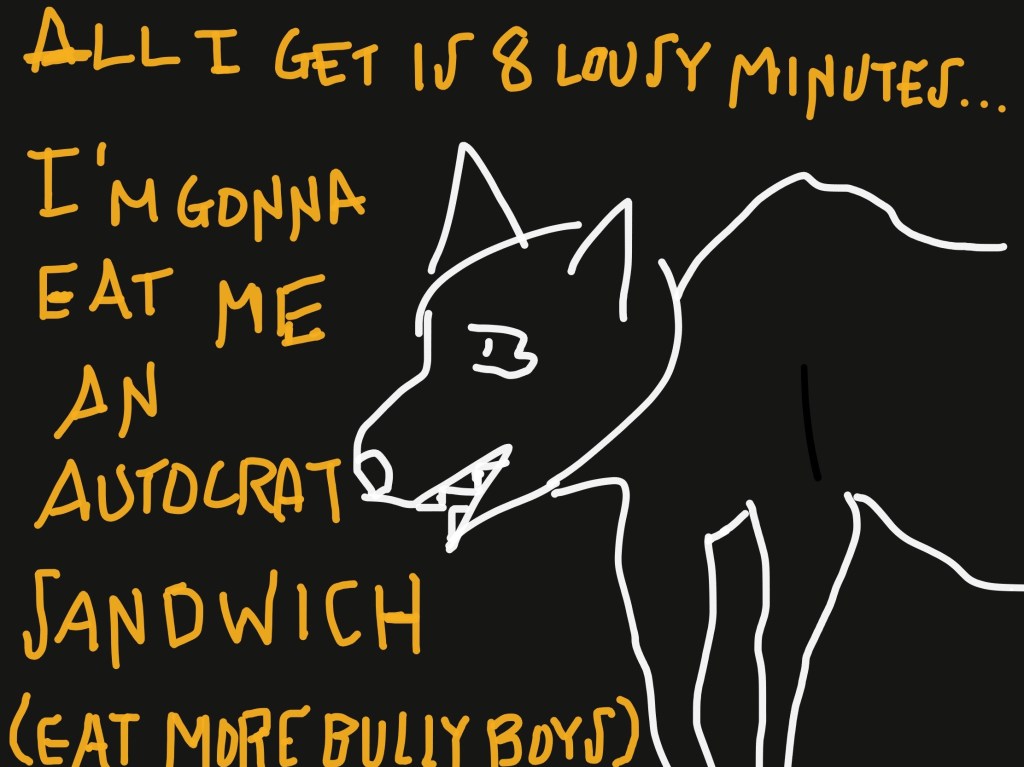 ALL I GET IS 8 LOUSY MINUTES...
I'M GONNA
EAT ME
AN
AUTOCRAT
SANDWICH
(EAT MORE BULLY BOYS)